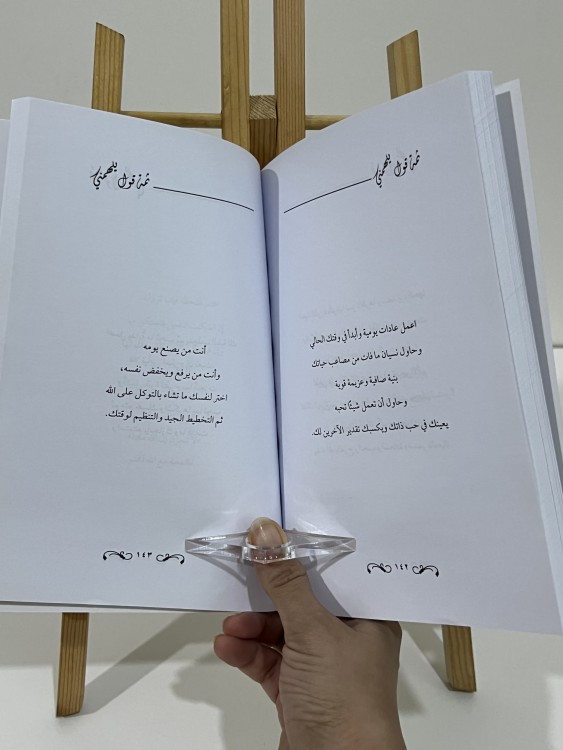 ثمة قول يلهمني
اعمل عادات يومية وأبدأ في وقتك الحالي
وحاول نسيان ما فات من مصاعب حياتك
بنية صافية وعزيمة قوية
وحاول أن تعمل شيئًا تحبه
يعينك في حب ذاتك ويكسبك تقدير الآخرين لك.
١٤٢
ثمة قول يلهمني
أنت من يصنع يومه
وأنت من يرفع ويخفض نفسه،
اختر لنفسك ما تشاء بالتوكل على الله
ثم التخطيط الجيد والتنظيم لوقتك.
١٤٣